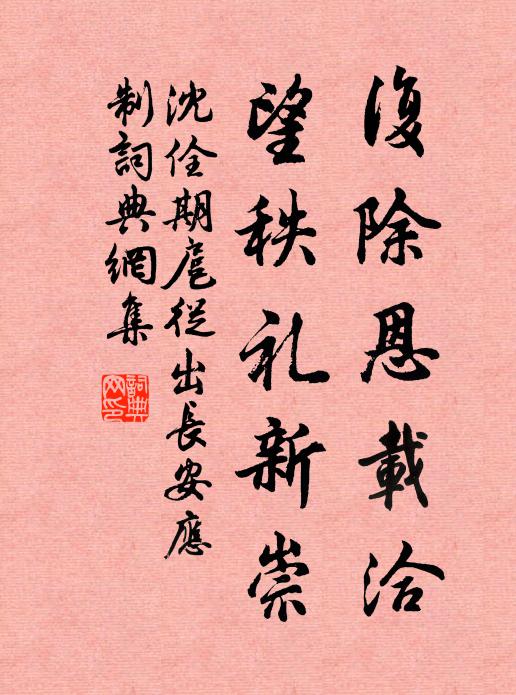 復除恩載洽
望秩礼新崇
沈佺期扈從出長安應
制詞典網集
詞典
网印